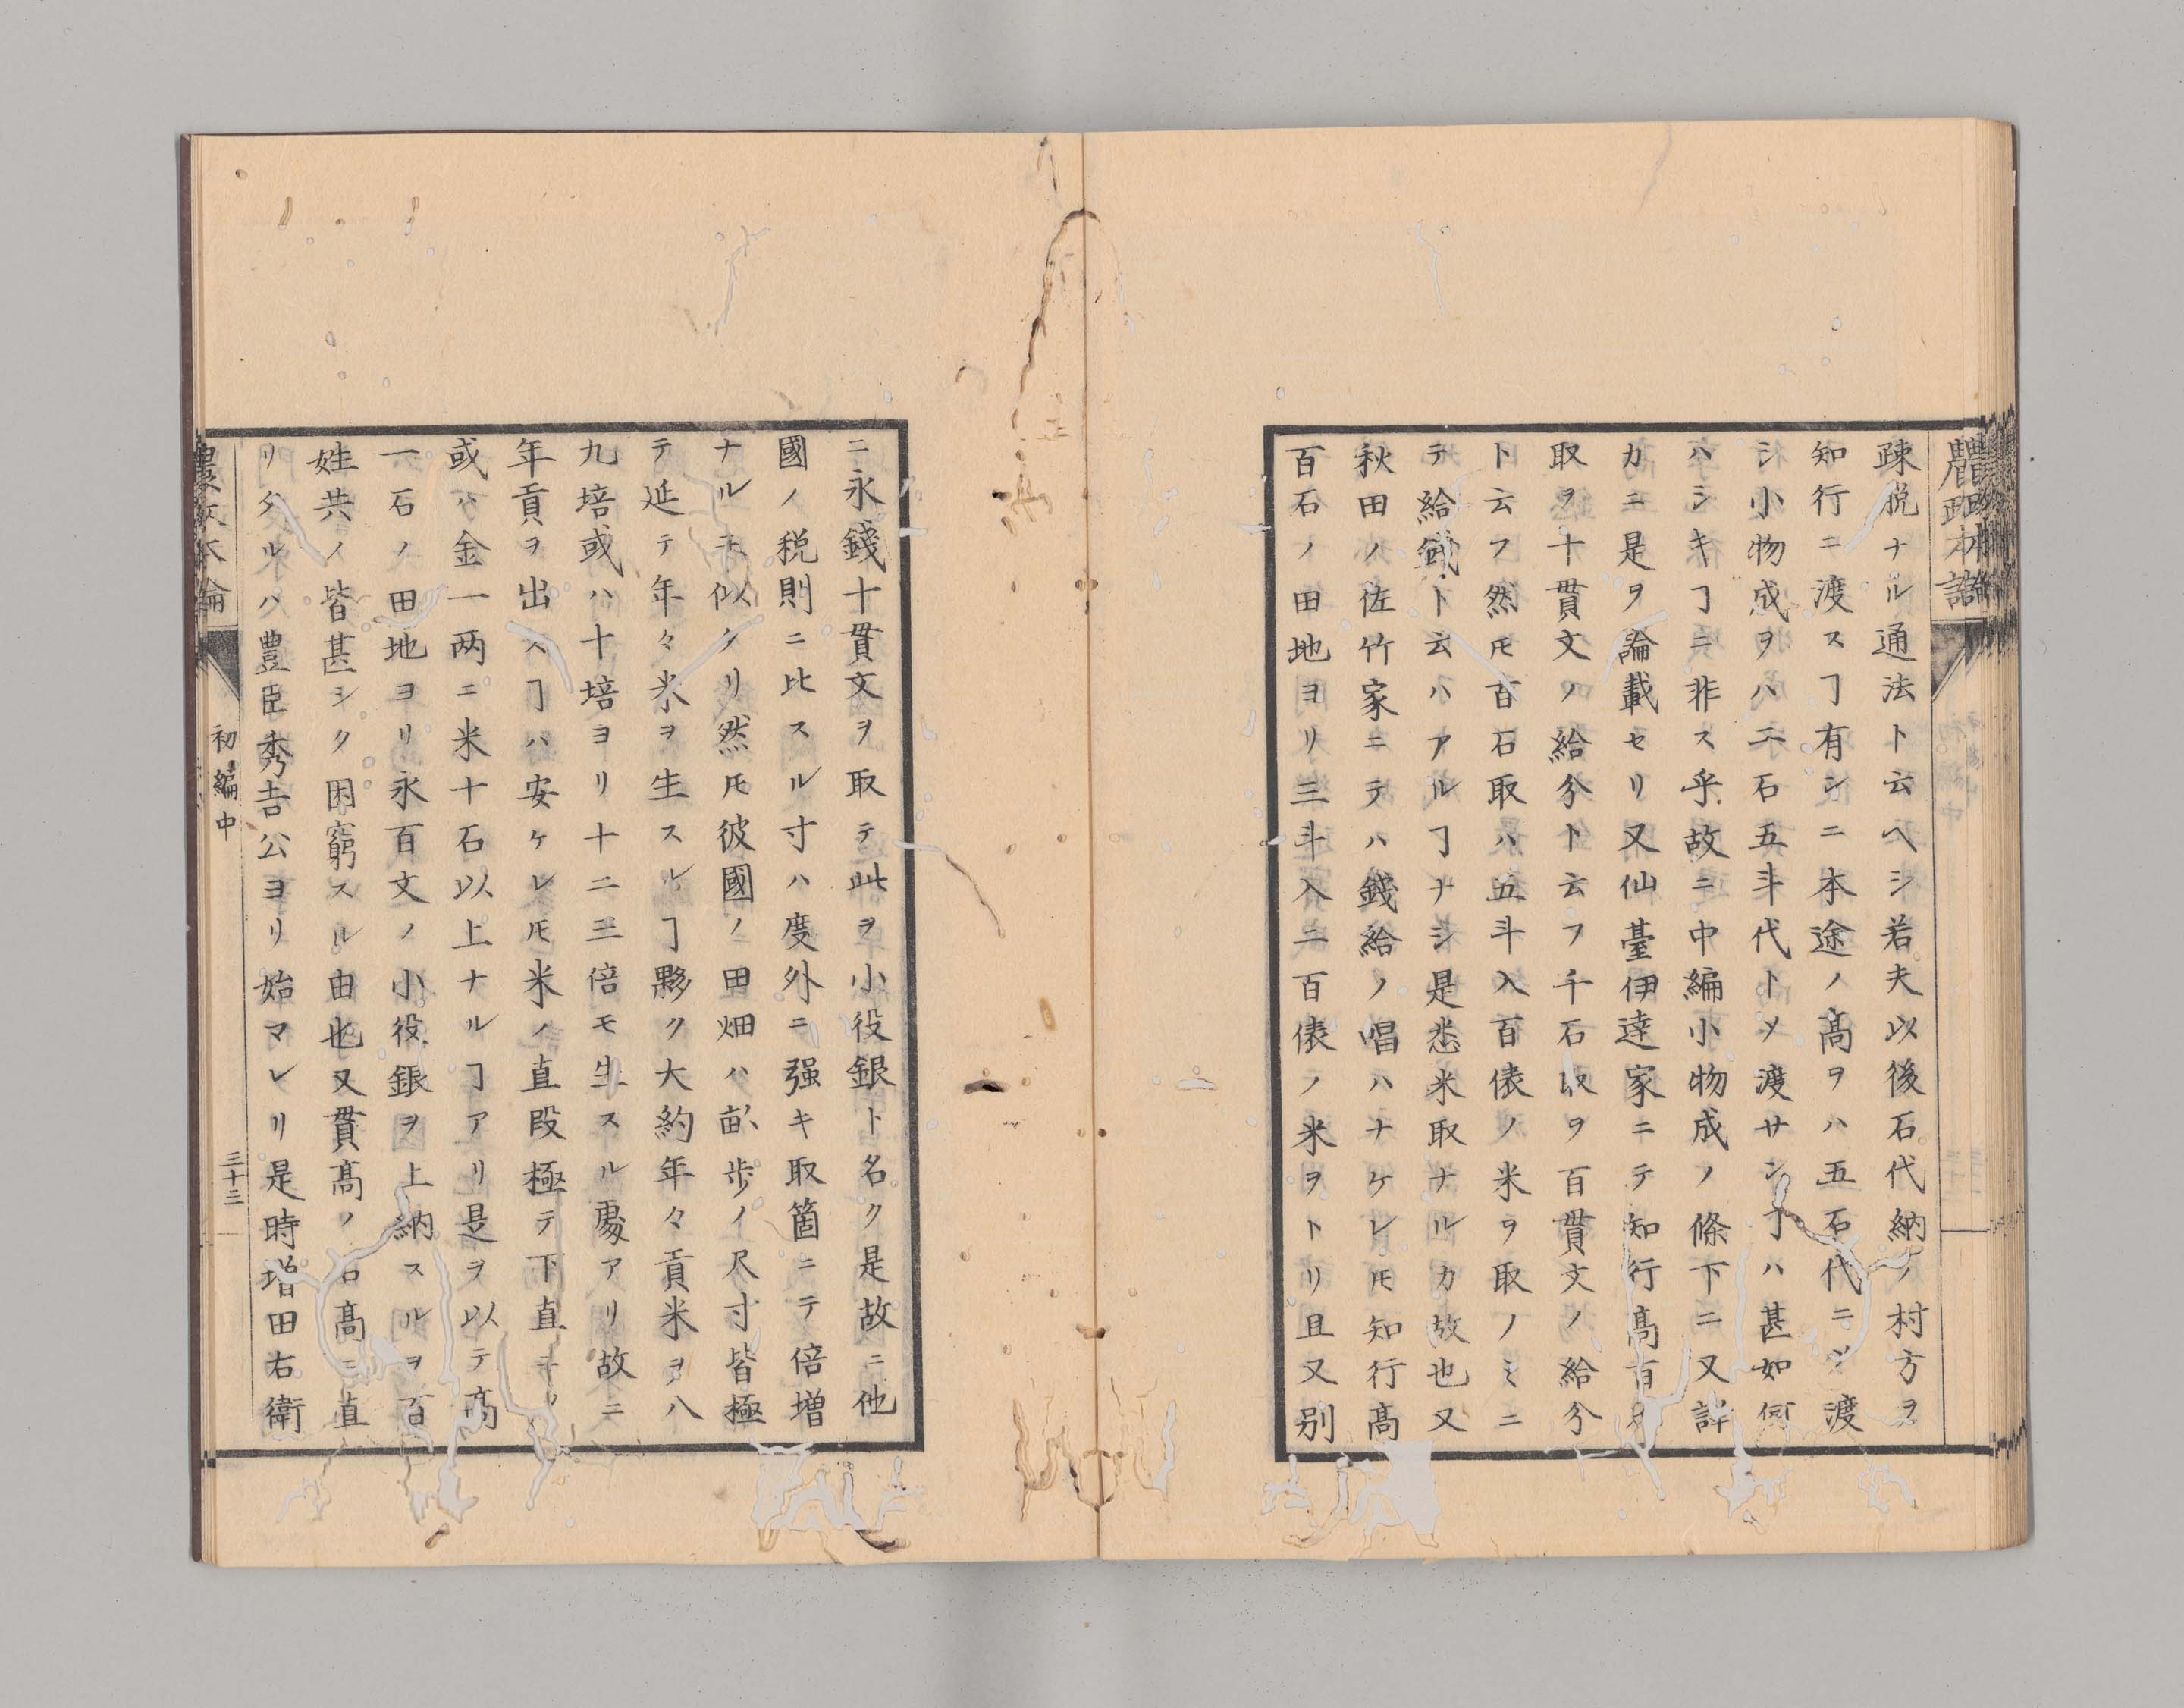 疎悦ナル通法ト云ヘシ若夫以後石代納ノ村方ヲ
知行ニ渡スヿ有シニ本途ノ髙ヲハ五石代ニメ渡
シ小物成ヲハ二石五斗代トメ渡サンヿハ甚如何
ハシキヿニ非ス乎故ニ中編小物成ノ條下ニ又詳
カニ是ヲ論載セリ又仙臺伊達家ニテ知行髙百石
取ヲ十貫文ノ給分ト云フ千石取ヲ百貫文ノ給分
ト云フ然𪜈百石取ハ五斗入百俵ノ米ヲ取ノミニ
テ給錢ト云ハアルヿナシ是悉米取ナルカ故也又
秋田ノ佐竹家ニテハ錢給ノ唱ハナケレ𪜈知行髙
百石ノ田地ヨリ三斗入二百俵ノ米ヲトリ且又别
ニ永錢十貫文ヲ取テ此ヲ小役銀ト名ク是故ニ他
國ノ税則ニ比スル寸ハ度外ニ强キ取箇ニテ倍增
ナルニ似タリ然𪜈彼國ノ田畑ハ畝歩ノ尺寸皆極
テ延テ年々米ヲ生スルヿ夥ク大約年々貢米ヲ八
九培或ハ十培ヨリ十二三倍モ生スル處アリ故ニ
年貢ヲ出スヿハ安ケレ𪜈米ノ直段極テ下直ニ
或ハ金一两ニ米十石以上ナルヿアリ是ヲ以テ髙
一石ノ田地ヨリ永百文ノ小役銀ヲ上納スルヲ百
姓共ノ皆甚シク困窮スル由也又貫髙ノ石髙ニ直
リタルハ豊臣秀吉公ヨリ始マレリ是時增田右衛
農政本論
初編中
三十三